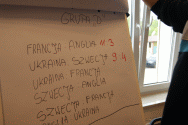 GRUPA D
FRANCJA ANGLIA 1:3
UKRAINA SZWECJA 3:4
UKRAINA FRANCJA
SZWECJA ANGLIA
SZWECJA FRANCJA
ANGLIA UKRAINA